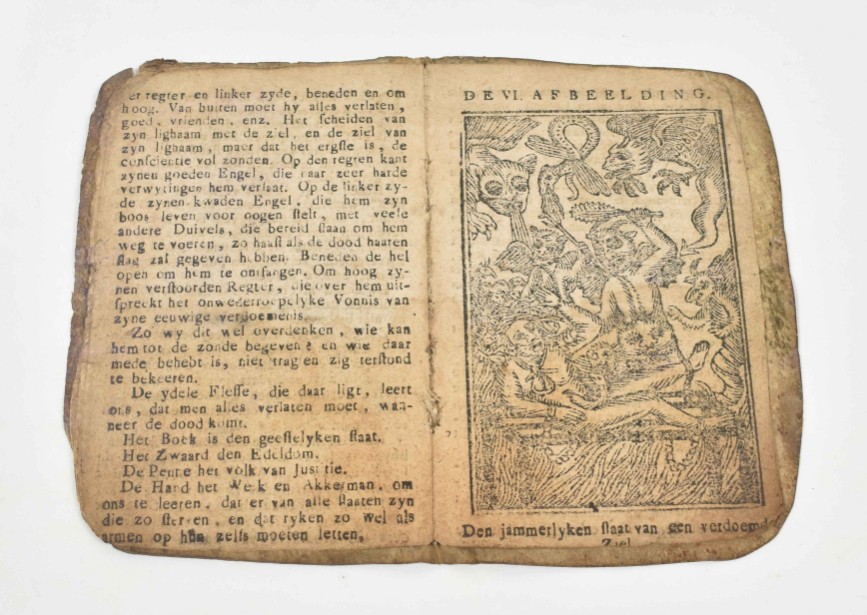 er regter en linker zyde, beneden en om
hoog. Van buiten moet hy alles verlaten,
goed, vrienden, enz. Het scheiden van
zyn lighaam met de ziel, en de ziel van
zyn lighaam, maer dat het ergste is, de
conscientie vol zonden. Op den regten kant
zynen goeden Engel, die naar zeer harde
verwytingen hem verlaat. Op de linker zy-
de zynen kwaden Engel, die hem zyn
boos leven voor oogen stelt, met veele
andere Duivels, die bereid staan om hem
weg te voeren, zo haast als de dood haaren
slag zal gegeven hebben. Beneden de hel
open om hem te ontfangen. Om hoog zy-
nen verstoorden Regter, die over hem uit-
spreekt het onwederroepelyke Vonnis van
zyne eeuwige verdoemenis.
Zo wy dit wel overdenken, wie kan
hem tot de zonde begeven? en wie daar
mede behebt is, niet tragten zig terstond
te bekeeren.
De ydele Flesse, die daar ligt, leert
ons, dat men alles verlaten moet, wan-
neer de dood komt.
Het Boek is den geestelyken staat.
Het Zwaard den Edeldom.
De Penne het volk van Justitie.
De Hand het Werk en Akkerman, om
ons te leeren, dat er van alle staaten zyn
die zo sterven, en dat ryken zo wel als
armen op hun zelfs moeten letten,
DE VI. AFBEELDING.
Den jammerlyken staat van een verdoemde
Ziel